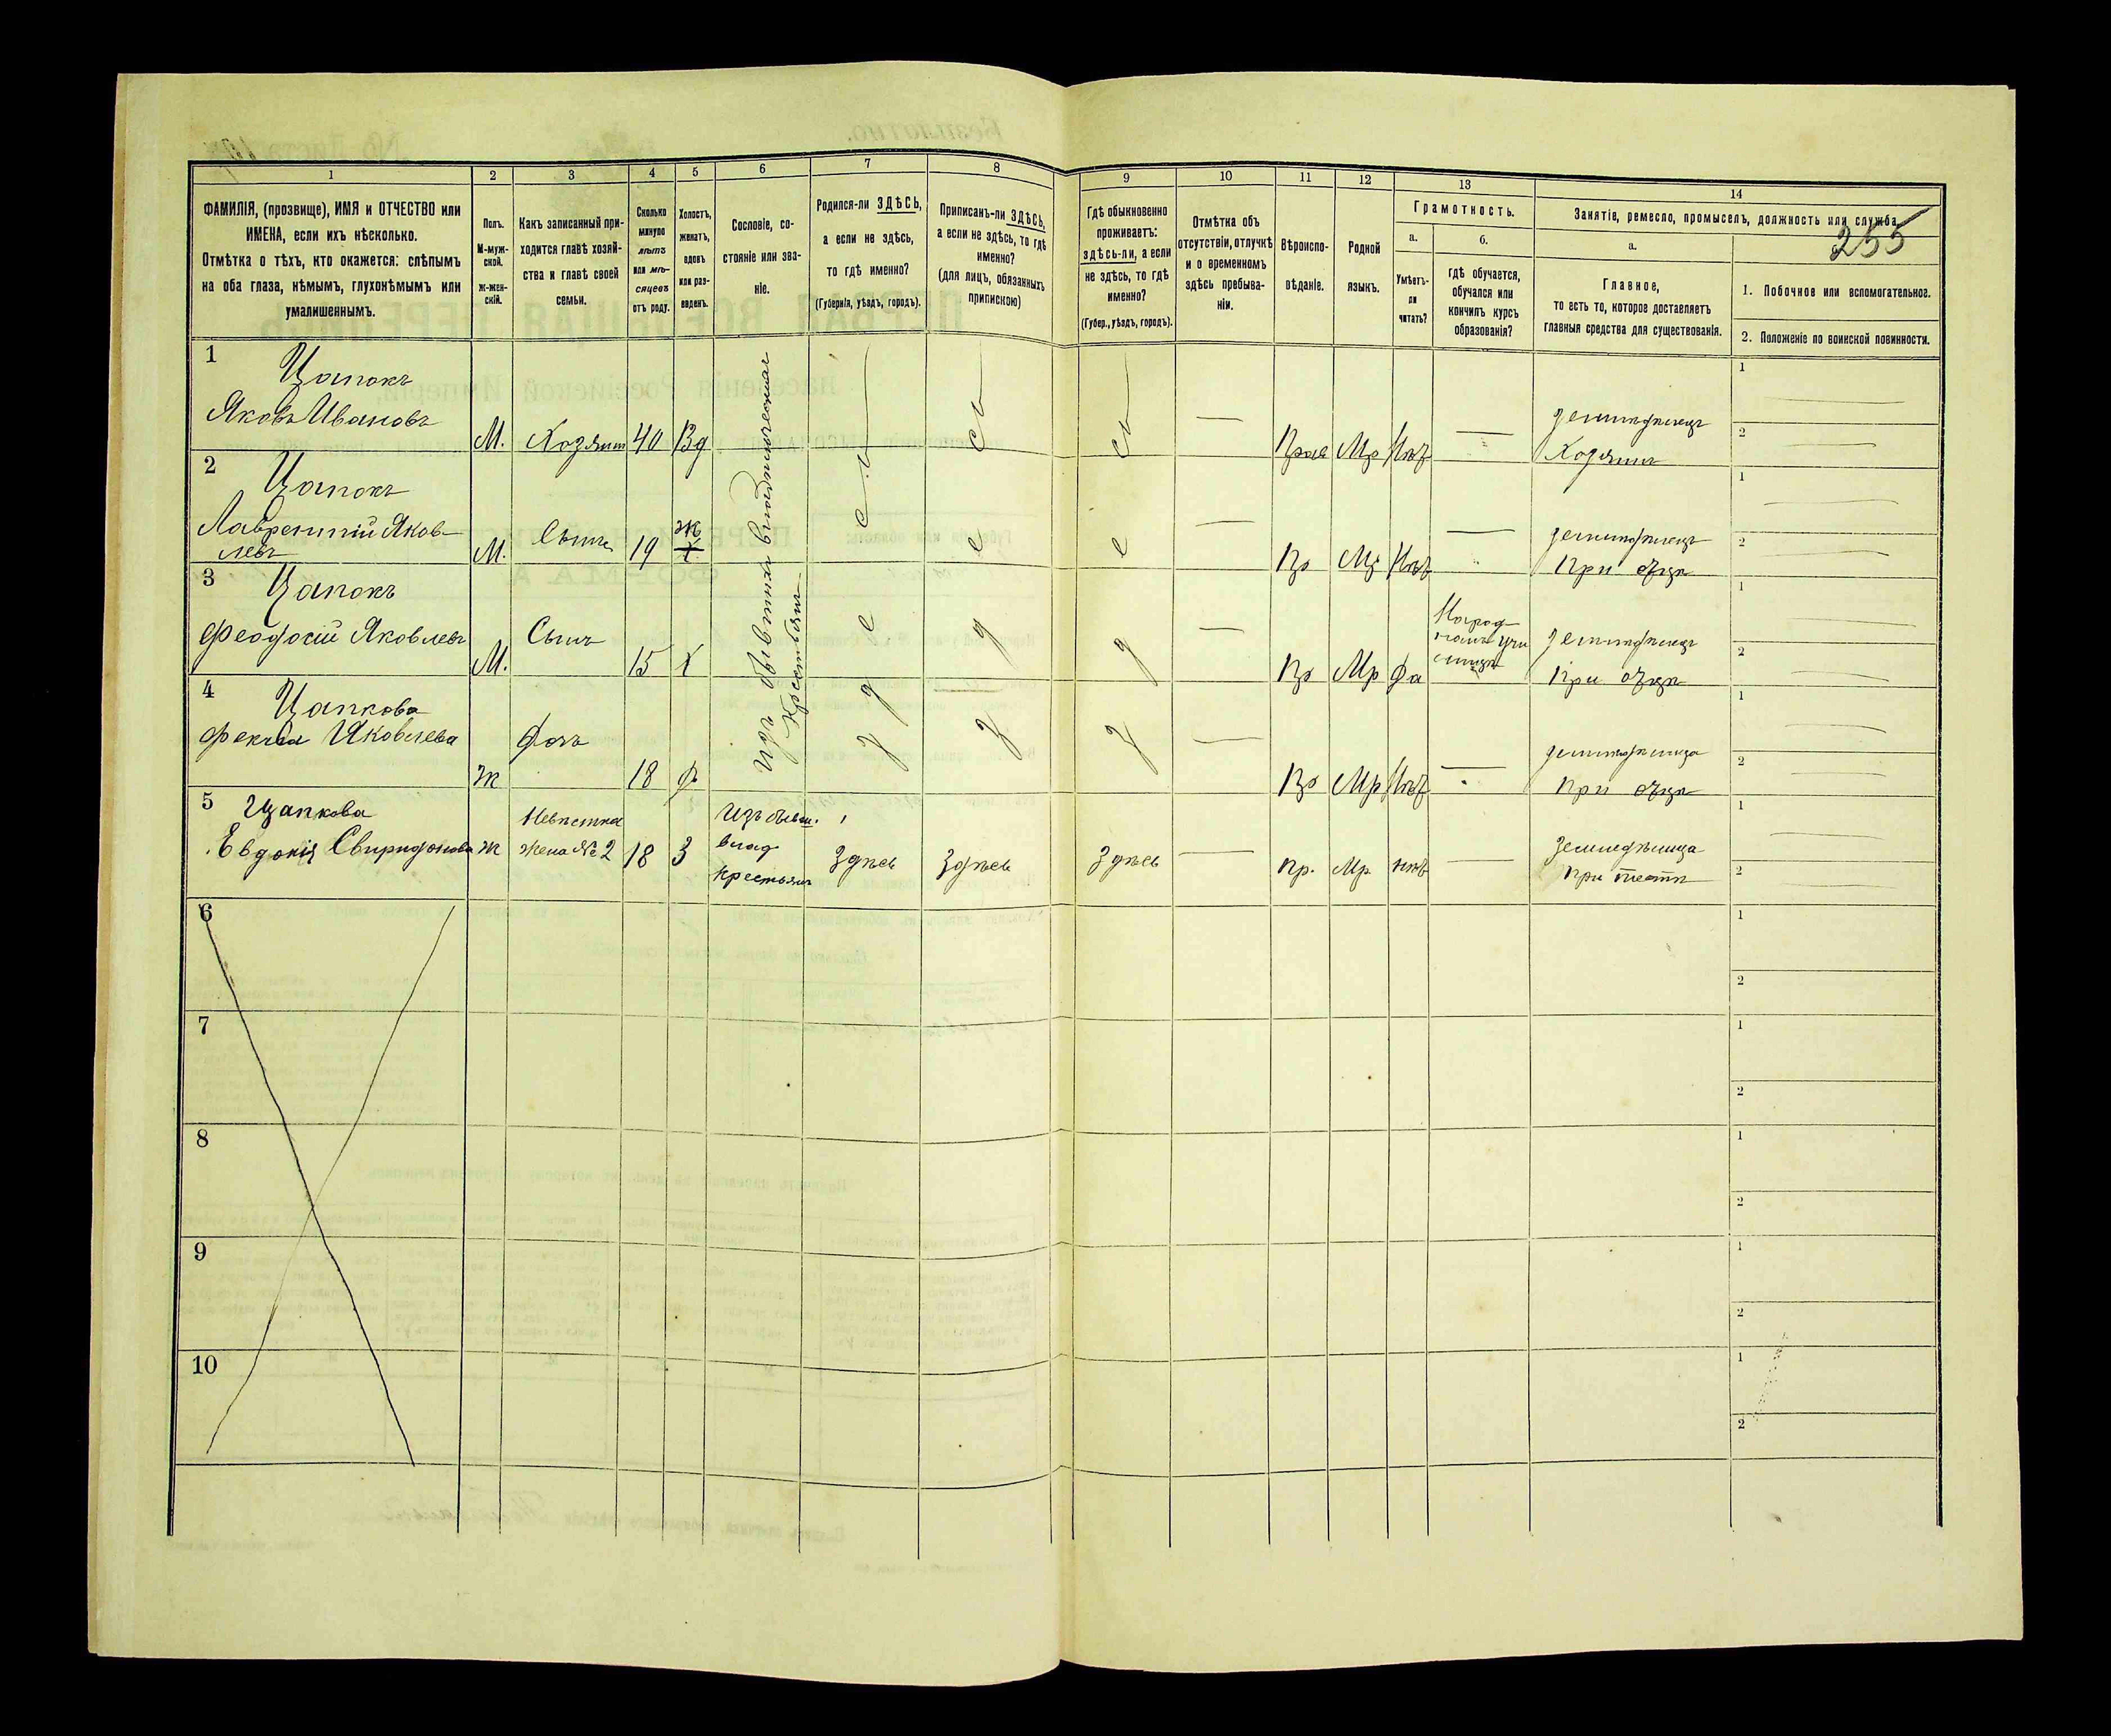 1
2
3
4
5
6
7
8
9
10
11
12
13
14
ФАМИЛІЯ, (прозвище), ИМЯ и ОТЧЕСТВО или
ИМЕНА, если ихъ нѣсколько.
Отмѣтка о тѣхъ, кто окажется: слѣпымъ
на оба глаза, нѣмымъ, глухонѣмымъ или
умалишеннымъ.
Полъ.
М-муж-
ской.
ж-жен-
скій.
Какъ записанный при-
ходится главѣ хозяй-
ства и главѣ своей
семьи.
Сколько
минуло
лѣтъ
или мѣ-
сяцевъ
отъ роду.
Холостъ,
женатъ,
вдовъ
или раз-
веденъ.
Сословіе, со-
стояніе или зва-
ніе.
Родился-ли ЗДѢСЬ,
а если не здѣсь,
то гдѣ именно?
(Губернія, уѣздъ, городъ).
Приписанъ-ли ЗДѢСЬ,
а если не здѣсь, то гдѣ
именно?
(для лицъ, обязанныхъ
припискою)
Гдѣ обыкновенно
проживаетъ:
здѣсь-ли, а если
не здѣсь, то гдѣ
именно?
(Губер., уѣздъ, городъ).
Отмѣтка объ
отсутствіи, отлучкѣ
и о временномъ
здѣсь пребыва-
ніи.
Вѣроиспо-
вѣданіе.
Родной
языкъ.
Грамотность.
а.
б.
Умѣетъ-
ли
читать?
гдѣ обучается,
обучался или
кончилъ курсъ
образованія?
Занятіе, ремесло, промыселъ, должность или служба.
255
а.
Главное,
то есть то, которое доставляетъ
главныя средства для существованія.
1. Побочное или вспомогательное.
2. Положеніе по воинской повинности.
1
Цапокъ
Яковъ Ивановъ
М.
Хозяинъ
40
Вд
Изъ бывшихъ владѣльческихъ
Крестьянъ
Прав
Мр
Нѣт
земледѣлецъ
Хозяинъ
1
2
2
Цапокъ
Лаврентій Яков-
левъ
М.
Сынъ
19
Ж
Х
Пр
Мр
Нѣт
земледѣлецъ
При отцѣ
1
2
3
Цапокъ
Феодосій Яковлевъ
М.
Сынъ
15
Х
Пр
Мр
Да
земледѣлецъ
При отцѣ
1
2
4
Цапкова
Фекла Яковлева
Ж
Дочь
18
Д
здѣсь
здѣсь
здѣсь
Пр
Мр
Нѣт
земледѣлица
При отцѣ
1
2
5
Цапкова
Евдокія Свиридонова
Ж
Невѣстка
жена № 2
18
З
Изъ бывш.
влад
крестьянъ
Здѣсь
Здѣсь
Здѣсь
Пр.
Мр
нѣт
Земледѣлица
При тестѣ
1
2
6
1
2
7
1
2
8
1
2
9
1
2
10
1
2